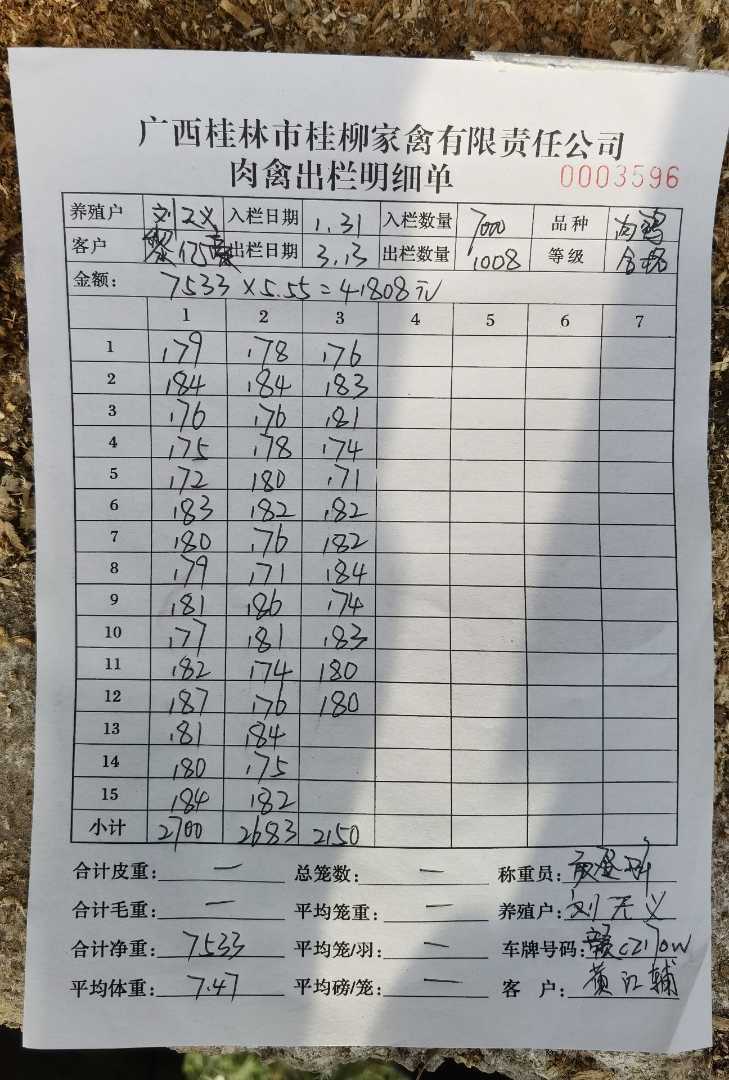 广西桂林市桂柳家禽有限责任公司
肉禽出栏明细单 0003596
养殖户 刘 义 入栏日期 1.31 入栏数量 7000 品种 肉鸡
客户 出栏日期 3.13 出栏数量 1008 等级 合格
金额: 7533 × 5.55 = 41808元
1 2 3 4 5 6 7
1 179 178 176
2 184 184 183
3 176 176 181
4 175 178 174
5 172 180 171
6 183 182 182
7 180 176 182
8 179 171 184
9 181 186 174
10 177 181 183
11 182 174 180
12 187 176 180
13 181 184
14 180 175
15 184 182
小计 2700 2683 2150
合计皮重: — 总笼数: — 称重员:
合计毛重: — 平均笼重: — 养殖户: 刘 义
合计净重: 7533 平均笼/羽: — 车牌号码: 赣C2170W
平均体重: 7.47 平均磅/笼: — 客 户: 黄江辅